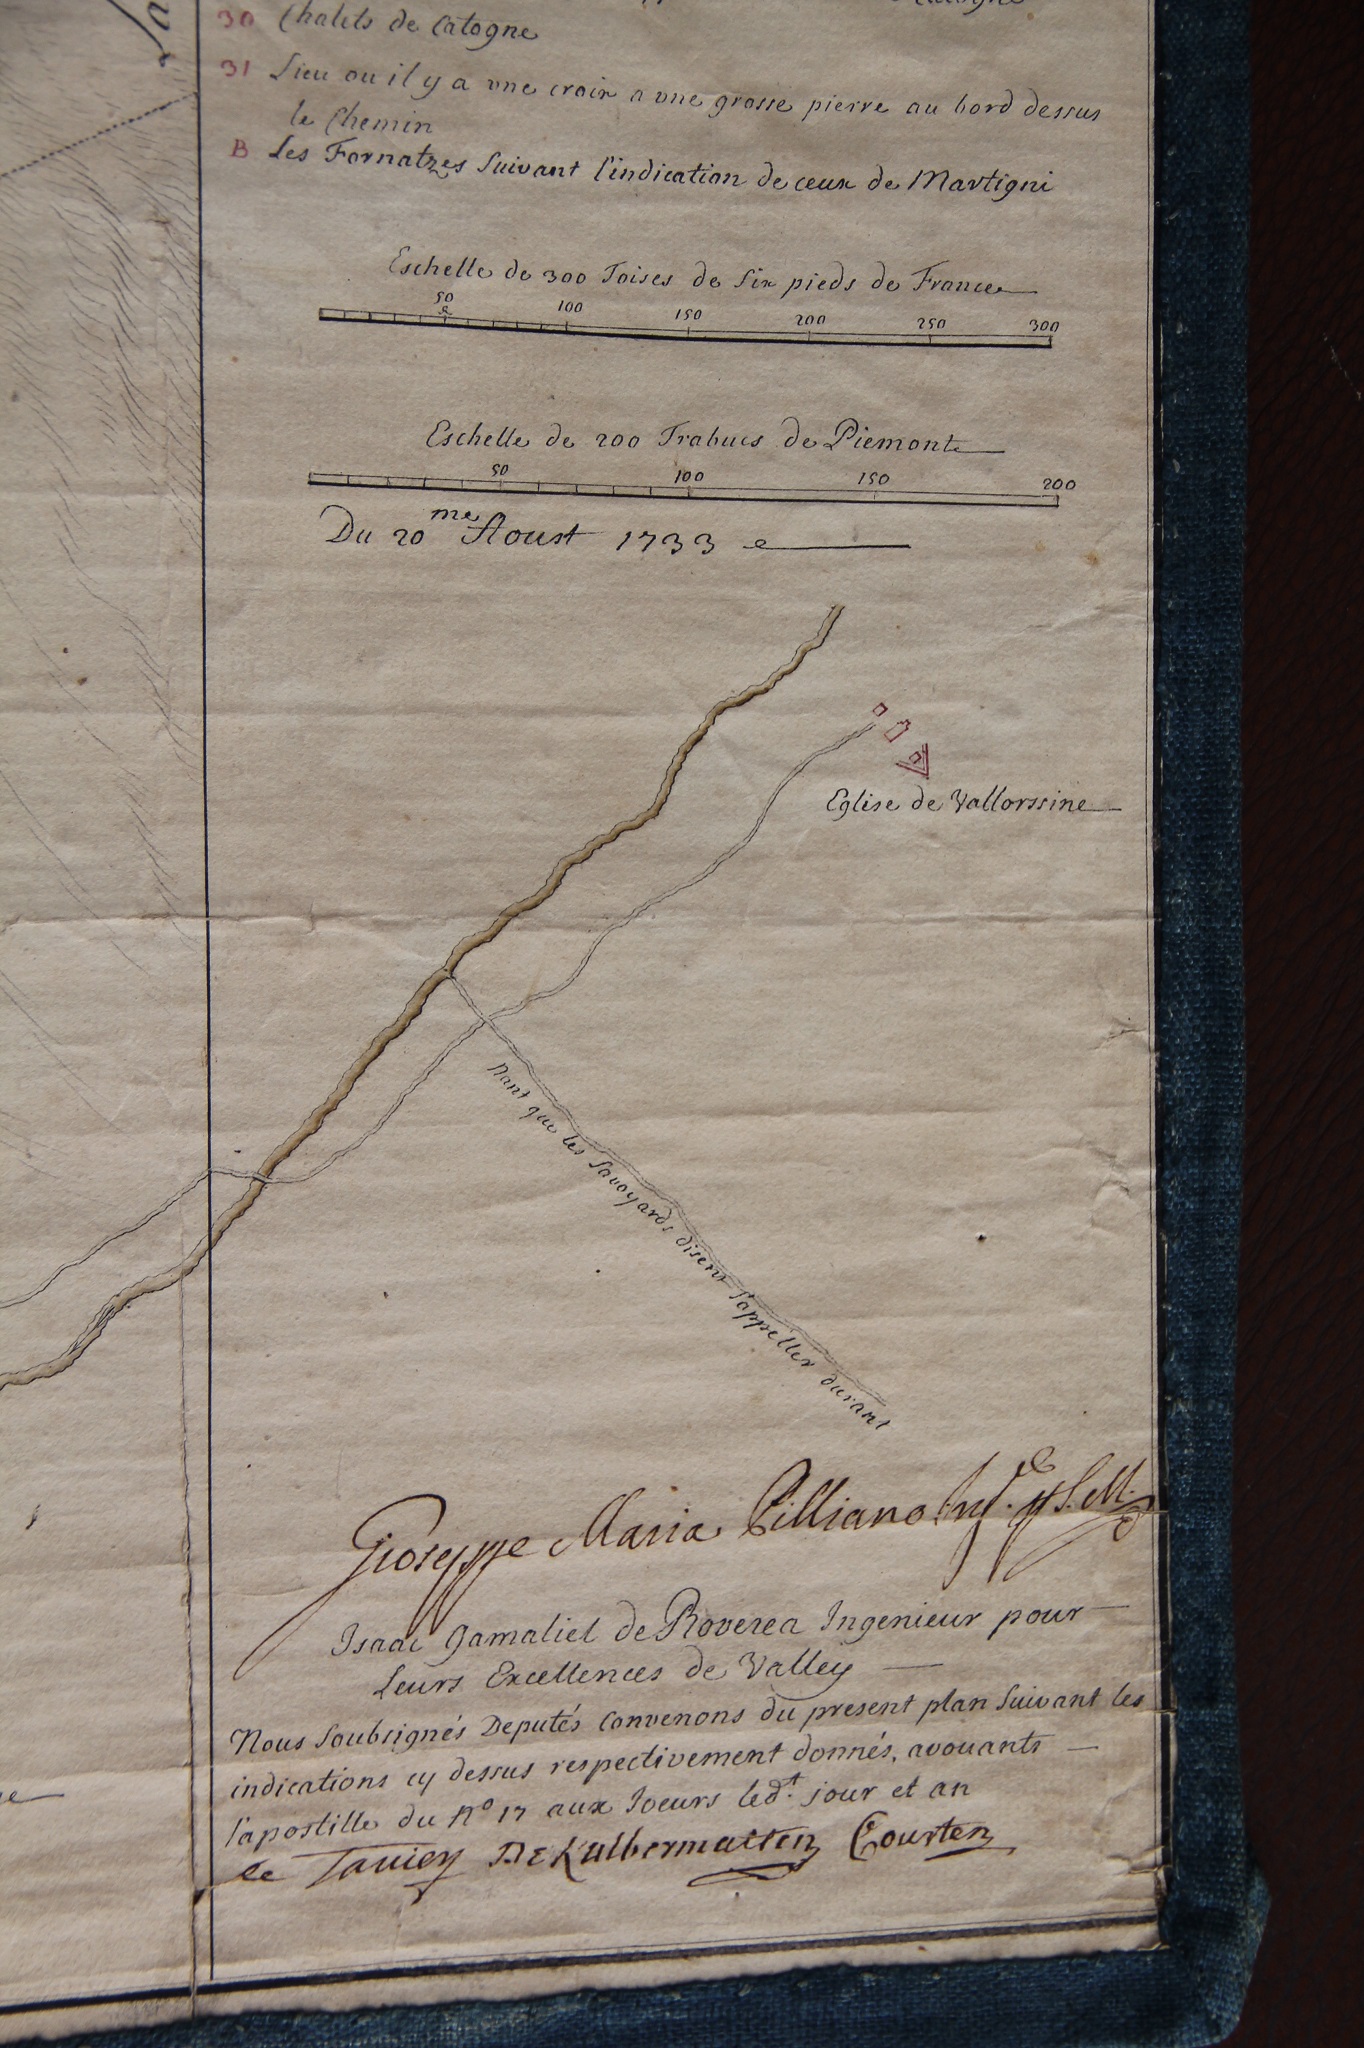 30 Chalets de Catogne
31 Lieu ou il y a une croix a une grosse pierre au bord dessus
le Chemin
B Les Fornatzes Suivant l'indication de ceux de Martigni
Eschelle de 300 Toises de Six pieds de France
50 100 150 200 250 300
Eschelle de 200 Trabucs de Piemont
50 100 150 200
Du 20me Aoust 1733
Eglise de Vallorssine
Nant que les Savoyards disent S'appeller durant
Gioseppe Maria Cilliano
Isaac Gamaliel de Roverea Ingenieur pour
Leurs Excellences de Valley
Nous Soubsignés Deputés Convenons du present plan Suivant les
indications cy dessus respectivement donnés, avouants
l'apostille du No 17 aux Joeurs led.t jour et an
De Kalbermatten Courten